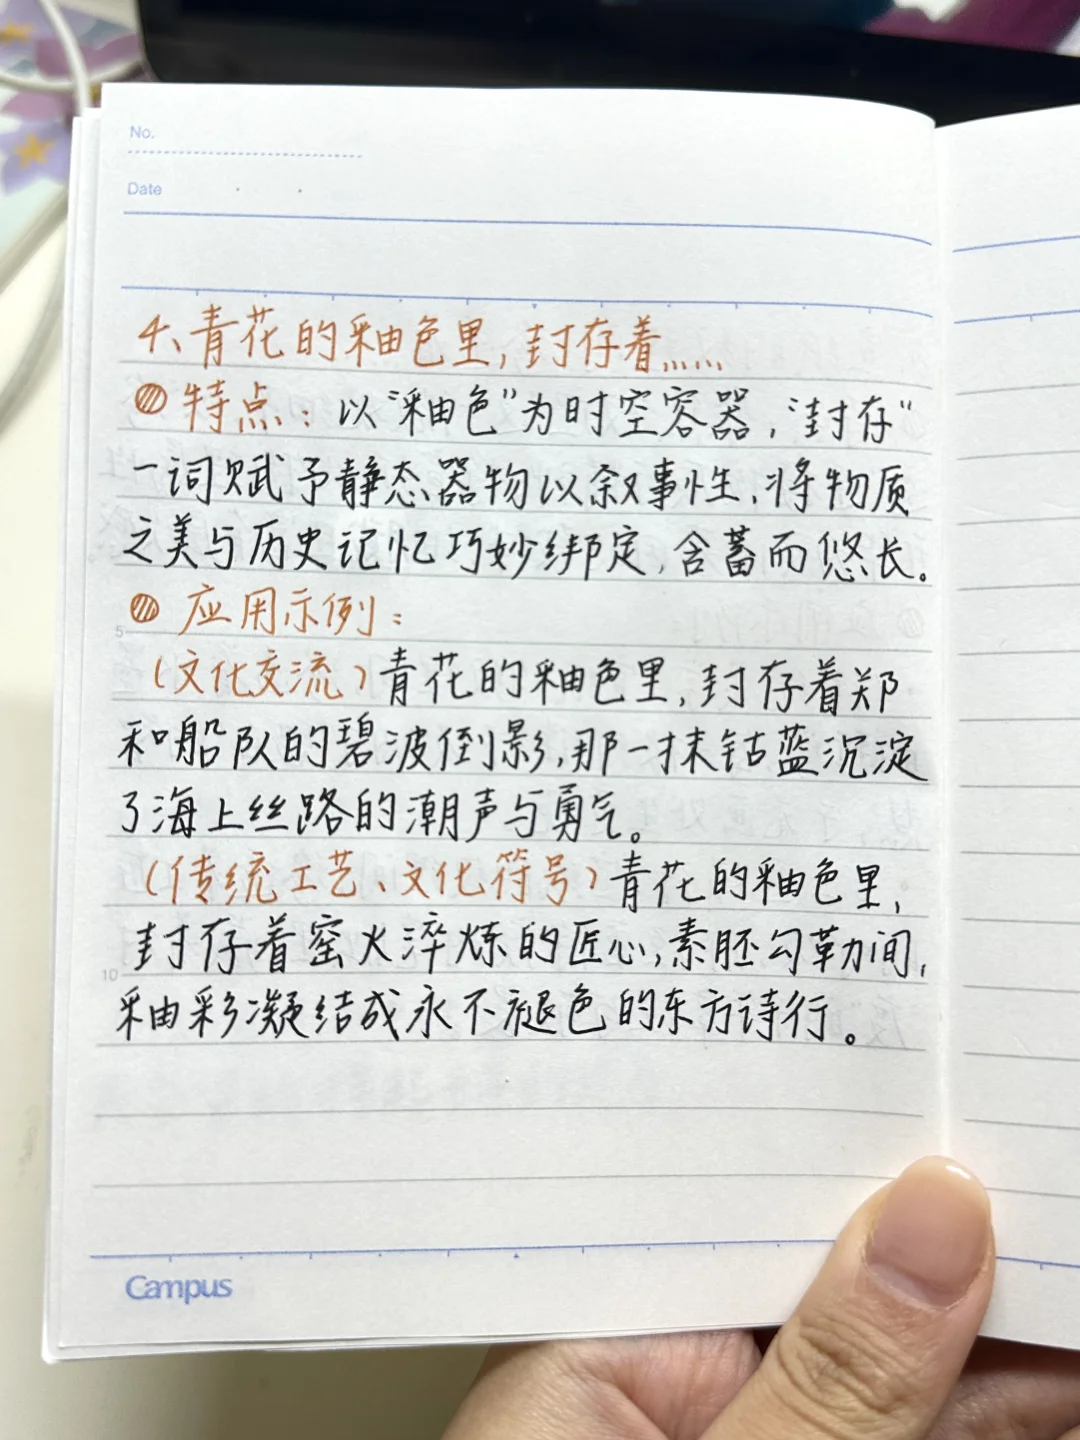 No.
Date
4、青花的釉色里,封存着……
特点：以“釉色”为时空容器，“封存”
一词赋予静态器物以叙事性,将物质
之美与历史记忆巧妙绑定,含蓄而悠长。
5
应用示例：
(文化交流)青花的釉色里,封存着郑
和船队的碧波倒影,那一抹钴蓝沉淀
了海上丝路的潮声与勇气。
(传统工艺、文化符号)青花的釉色里,
封存着窑火淬炼的匠心,素胚勾勒间,
10
釉彩凝结成永不褪色的东方诗行。
Campus